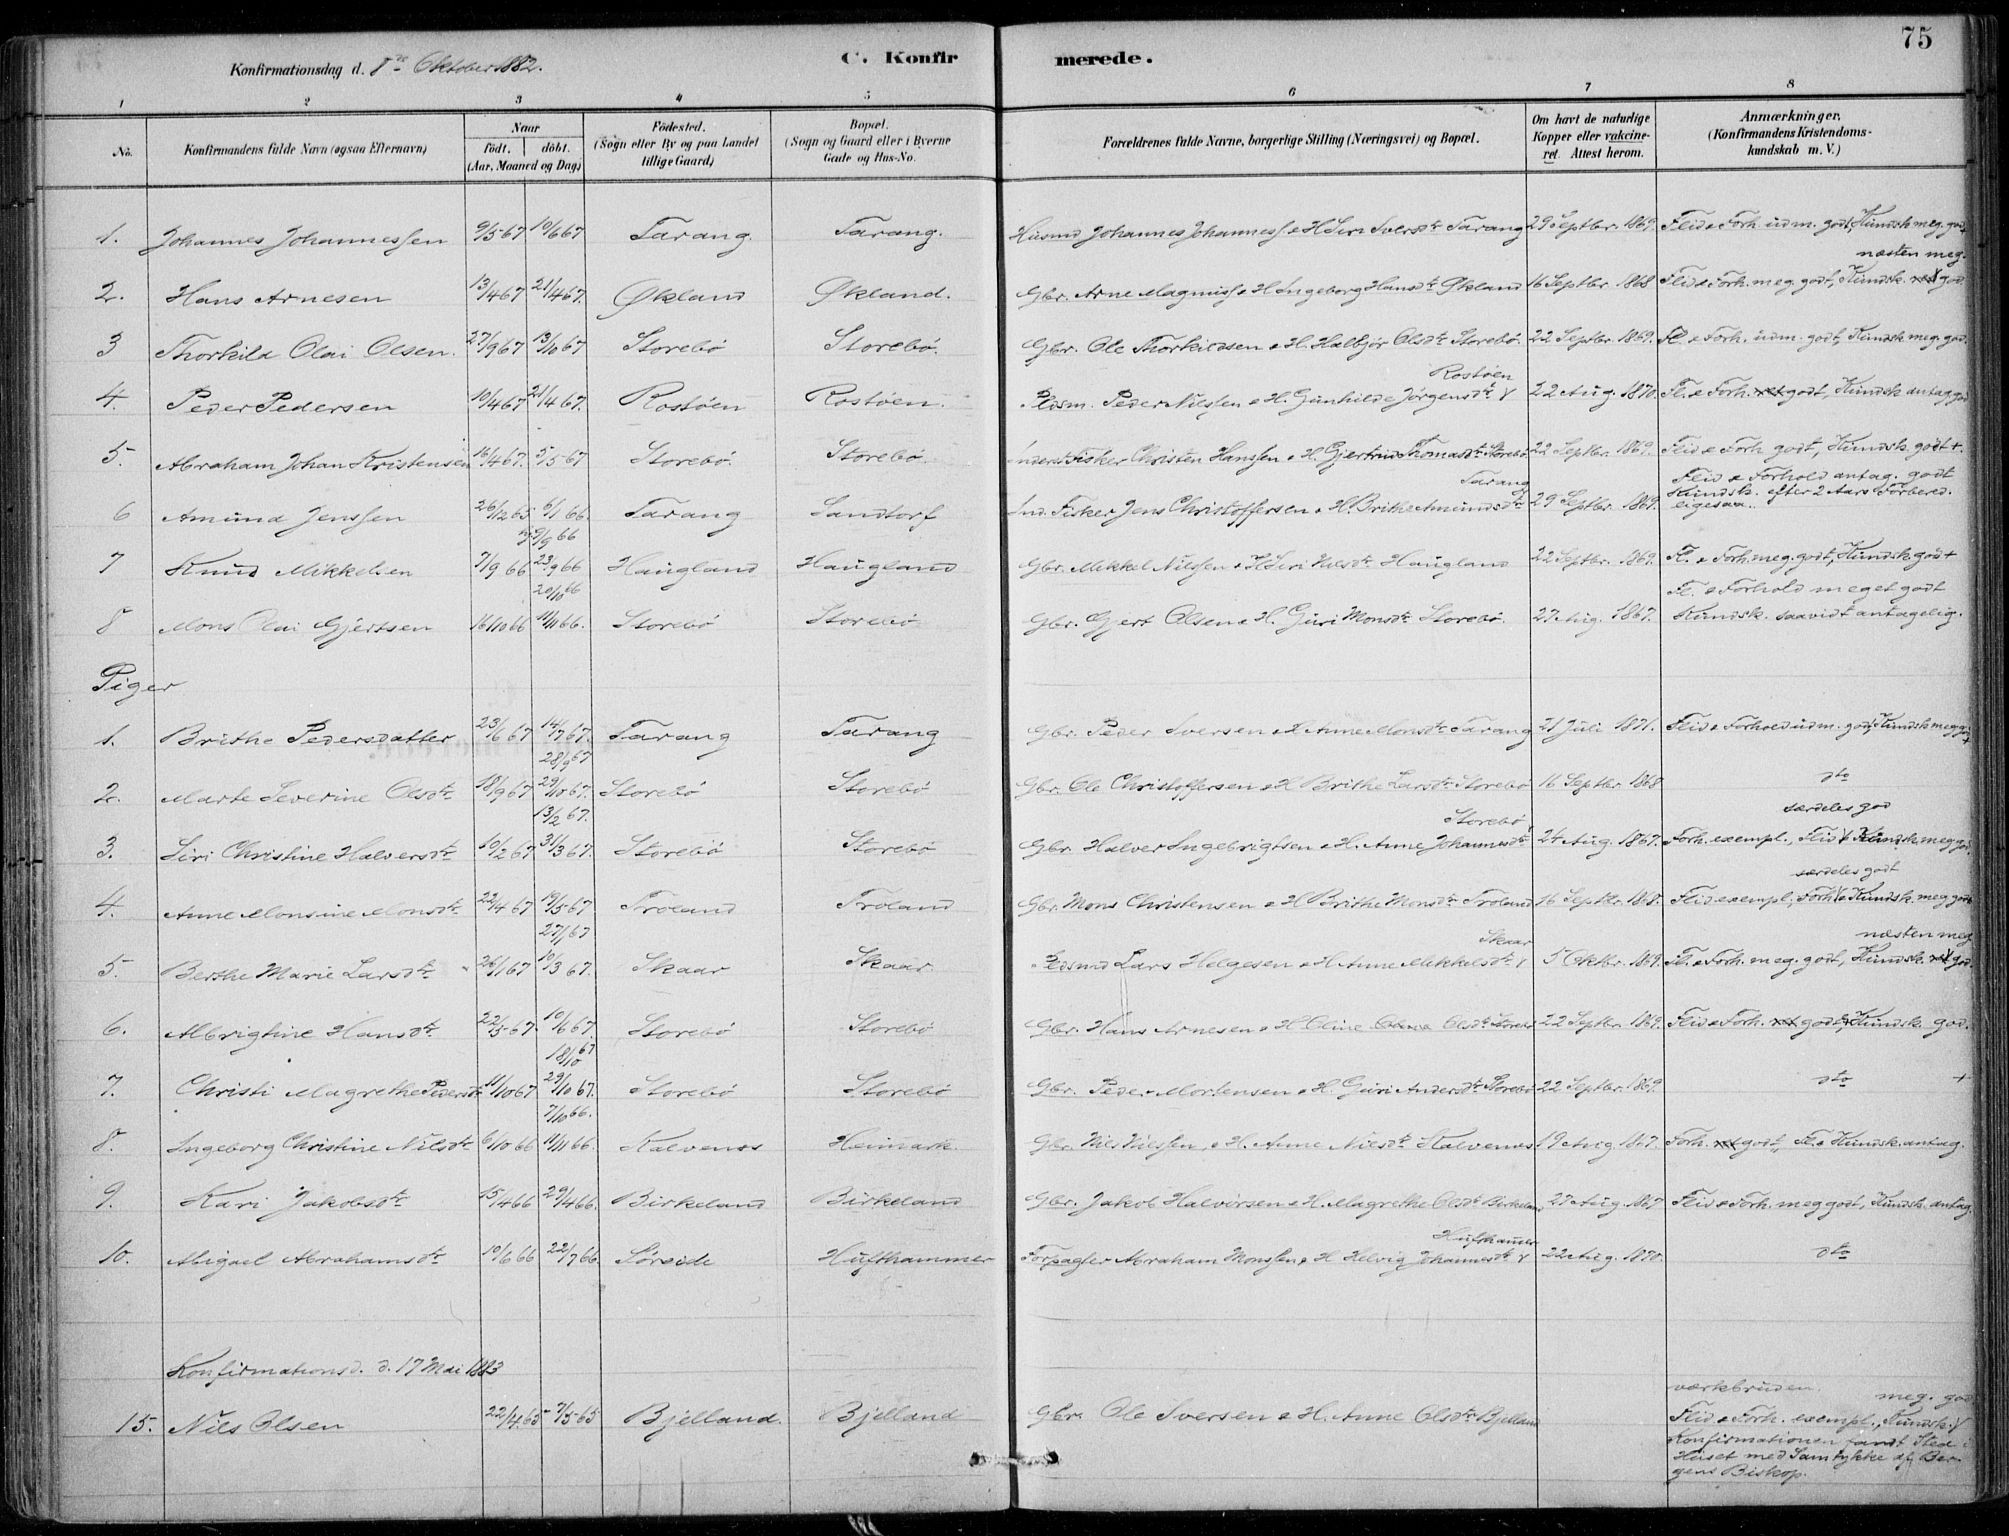 75
Konfirmationsdag d. 8de Oktober 1882.
C. Konfirmerede.
1 2 3 4 5 6 7 8
No. Konfirmandens fulde Navn (ogsaa Efternavn) Naar født. døbt. (Aar, Maaned og Dag) Fødested. (Sogn eller By og paa Landet tillige Gaard) Bopæl. (Sogn og Gaard eller i Byerne Gade og Hus-No. Forældrenes fulde Navne, borgerlige Stilling (Næringsvei) og Bopæl. Om havt de naturlige Kopper eller vakcineret. Attest herom. Anmærkninger, (Konfirmandens Kristendomskundskab m. V.)
1. Johannes Johannessen 9/5 67 10/6 67 Tarang. Tarang. Husmd Johannes Johanness. & H Siri Iversdtr Tarang 29 Septbr. 1869. Flid & Forh. udm. godt, Kundsk. meg. god +
2. Hans Arnesen 13/4 67 21/4 67. Økland Økland. Gbr. Arne Magnuss. & H Ingeborg Hansdtr Økland 16 Septbr. 1868 Flid & Forh. meg. godt, Kundsk. næsten meg. god.
3 Thorkild Olai Olsen. 27/9 67 13/10 67 Storebø Storebø. Gbr. Ole Thorkildsen & H. Halbjør Olsdtr Storebø. 22 Septbr. 1869. Fl. & Forh. udm. godt, Kundsk. meg. god.
4. Peder Pedersen 10/4 67 21/4 67. Rostøen Rostøen. Pldsm. Peder Nilssen & H. Gunhild Jørgensdtr Rostøen 22 Aug. 1870. Fl. & Forh. ret godt, Kundsk. antag. god
5. Abraham Johan Kristensen 16/4 67. 5/5 67 Storebø. Storebø. Inderst Fisker Christen Hanssen & H. Gjertrud Thomasdtr Storebø 22 Septbr. 1869. Flid & Forh. godt, Kundsk. godt +
6 Amund Jenssen 26/12 65 6/1 66. Tarang Sandtorf Ind. Fisker Jens Christoffersen & H. Brithe Amundsdtr Tarang 29 Septbr. 1869. Flid & Forhold antag. godt Kundsk. efter 2 Aars Forbered. ligesaa.
7 Knud Mikkelsen 7/9 66 9/9 66 23/9 66 Haugland Haugland Gbr. Mikkel Nilssen & H Siri Nilsdtr Haugland 22 Septbr. 1869. Fl. & Forh. meg. godt, Kundsk. god +
8 Mons Olai Gjertsen 16/10 66 20/10 66 11/11 66. Storebø Storebø Gbr. Gjert Olsen & H. Guri Monsdtr Storebø. 27 Aug. 1867. Fl. & Forhold meget godt Kundsk. saavidt antagelig.
Piger
1. Brithe Pedersdatter 23/6 67 14/7 67. Tarang Tarang Gbr. Peder Iversen & H Anne Monsdtr Tarang 21 Juli 1871. Flid & Forhold udm. god, Kundsk meg god +
2. Marte Severine Olsdtr 18/9 67 28/9 67 29/10 67. Storebø Storebø Gbr. Ole Christoffersen & H Brithe Larsdtr Storebø 16 Septbr 1868 dto
3. Siri Christine Halversdtr 10/2 67 13/2 67. 31/3 67. Storebø Storebø Gbr. Halver Ingebrigtsen & H. Anne Johannesdtr Storebø 24 Aug. 1867. Forh. exempl., Flid særdeles god Kundsk. meg god.
4. Anne Monsine Monsdtr. 22/4 67 19/5 67 Troland Troland Gbr. Mons Christensen & H Brithe Monsdtr Troland 16 Septbr. 1868. Flid exempl., Forh særdeles godt Kundsk. meg godt
5. Berthe Marie Larsdtr 26/1 67 27/1 67 10/3 67. Skaar Skaar Pldsmd Lars Helgesen & H Anne Mikkelsdtr Skaar 5 Oktbr. 1869. Fl. & Forh. meg. godt, Kundsk. næsten meg god.
6. Albrigtine Hansdtr 22/5 67. 10/6 67. Storebø Storebø Gbr. Hans Arnesen & H Oline Olsdtr Storebø 22 Septbr. 1869. Flid & Forh. ret godt, Kundsk. god.
7. Christi Magrethe Pedersdtr 11/10 67 18/10 67 29/10 67. Storebø Storebø Gbr. Peder Mortensen & H. Guri Andersdtr Storebø 22 Septbr. 1869. dto +
8. Ingeborg Christine Nilsdtr 6/10 66 7/10 66. 11/11 66. Kalvenes Heimark. Gbr. Nils Nilssen, & H. Anne Nilsdtr Kalvenes 19 Aug. 1867. Forh. ret godt, Fl. & Kundsk. antag.
9. Kari Jakobsdtr 15/4 66 29/4 66. Birkeland Birkeland Gbr. Jakob Halvorsen & H. Magrethe Olsdtr Birkeland 27 Aug. 1867 Flid & Forh. meg godt, Kundsk. antag.
10. Abigael Abrahamsdtr 10/6 66 22/7 66. Sørside Hufthammer Forpagter Abraham Monssen & H Helvig Johannesdtr Hufthamer 22 Aug. 1870. dto
Konfirmationsd. d. 17 Mai 1883
15. Nils Olsen 22/4 65 7/5 65 Bjelland. Bjelland Gbr. Ole Iversen & H. Anne Olsdtr Bjelland værkbruden. Flid & Forh. exempl., Kundsk. meg. god Konfirmationen fandt Sted i Huset med Samtykke af Bergens Biskop.